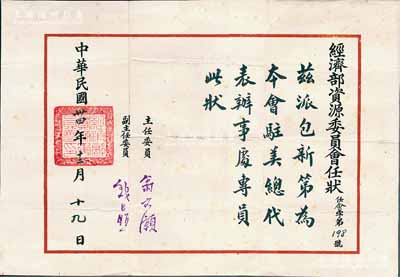 經濟部資源委員會任狀
任会字第198號
茲派包新第為
本會駐美總代
表辦事處專員
此狀
主任委員
翁文灝
副主任委員
錢昌照
中華民國卅四年十二月十九日